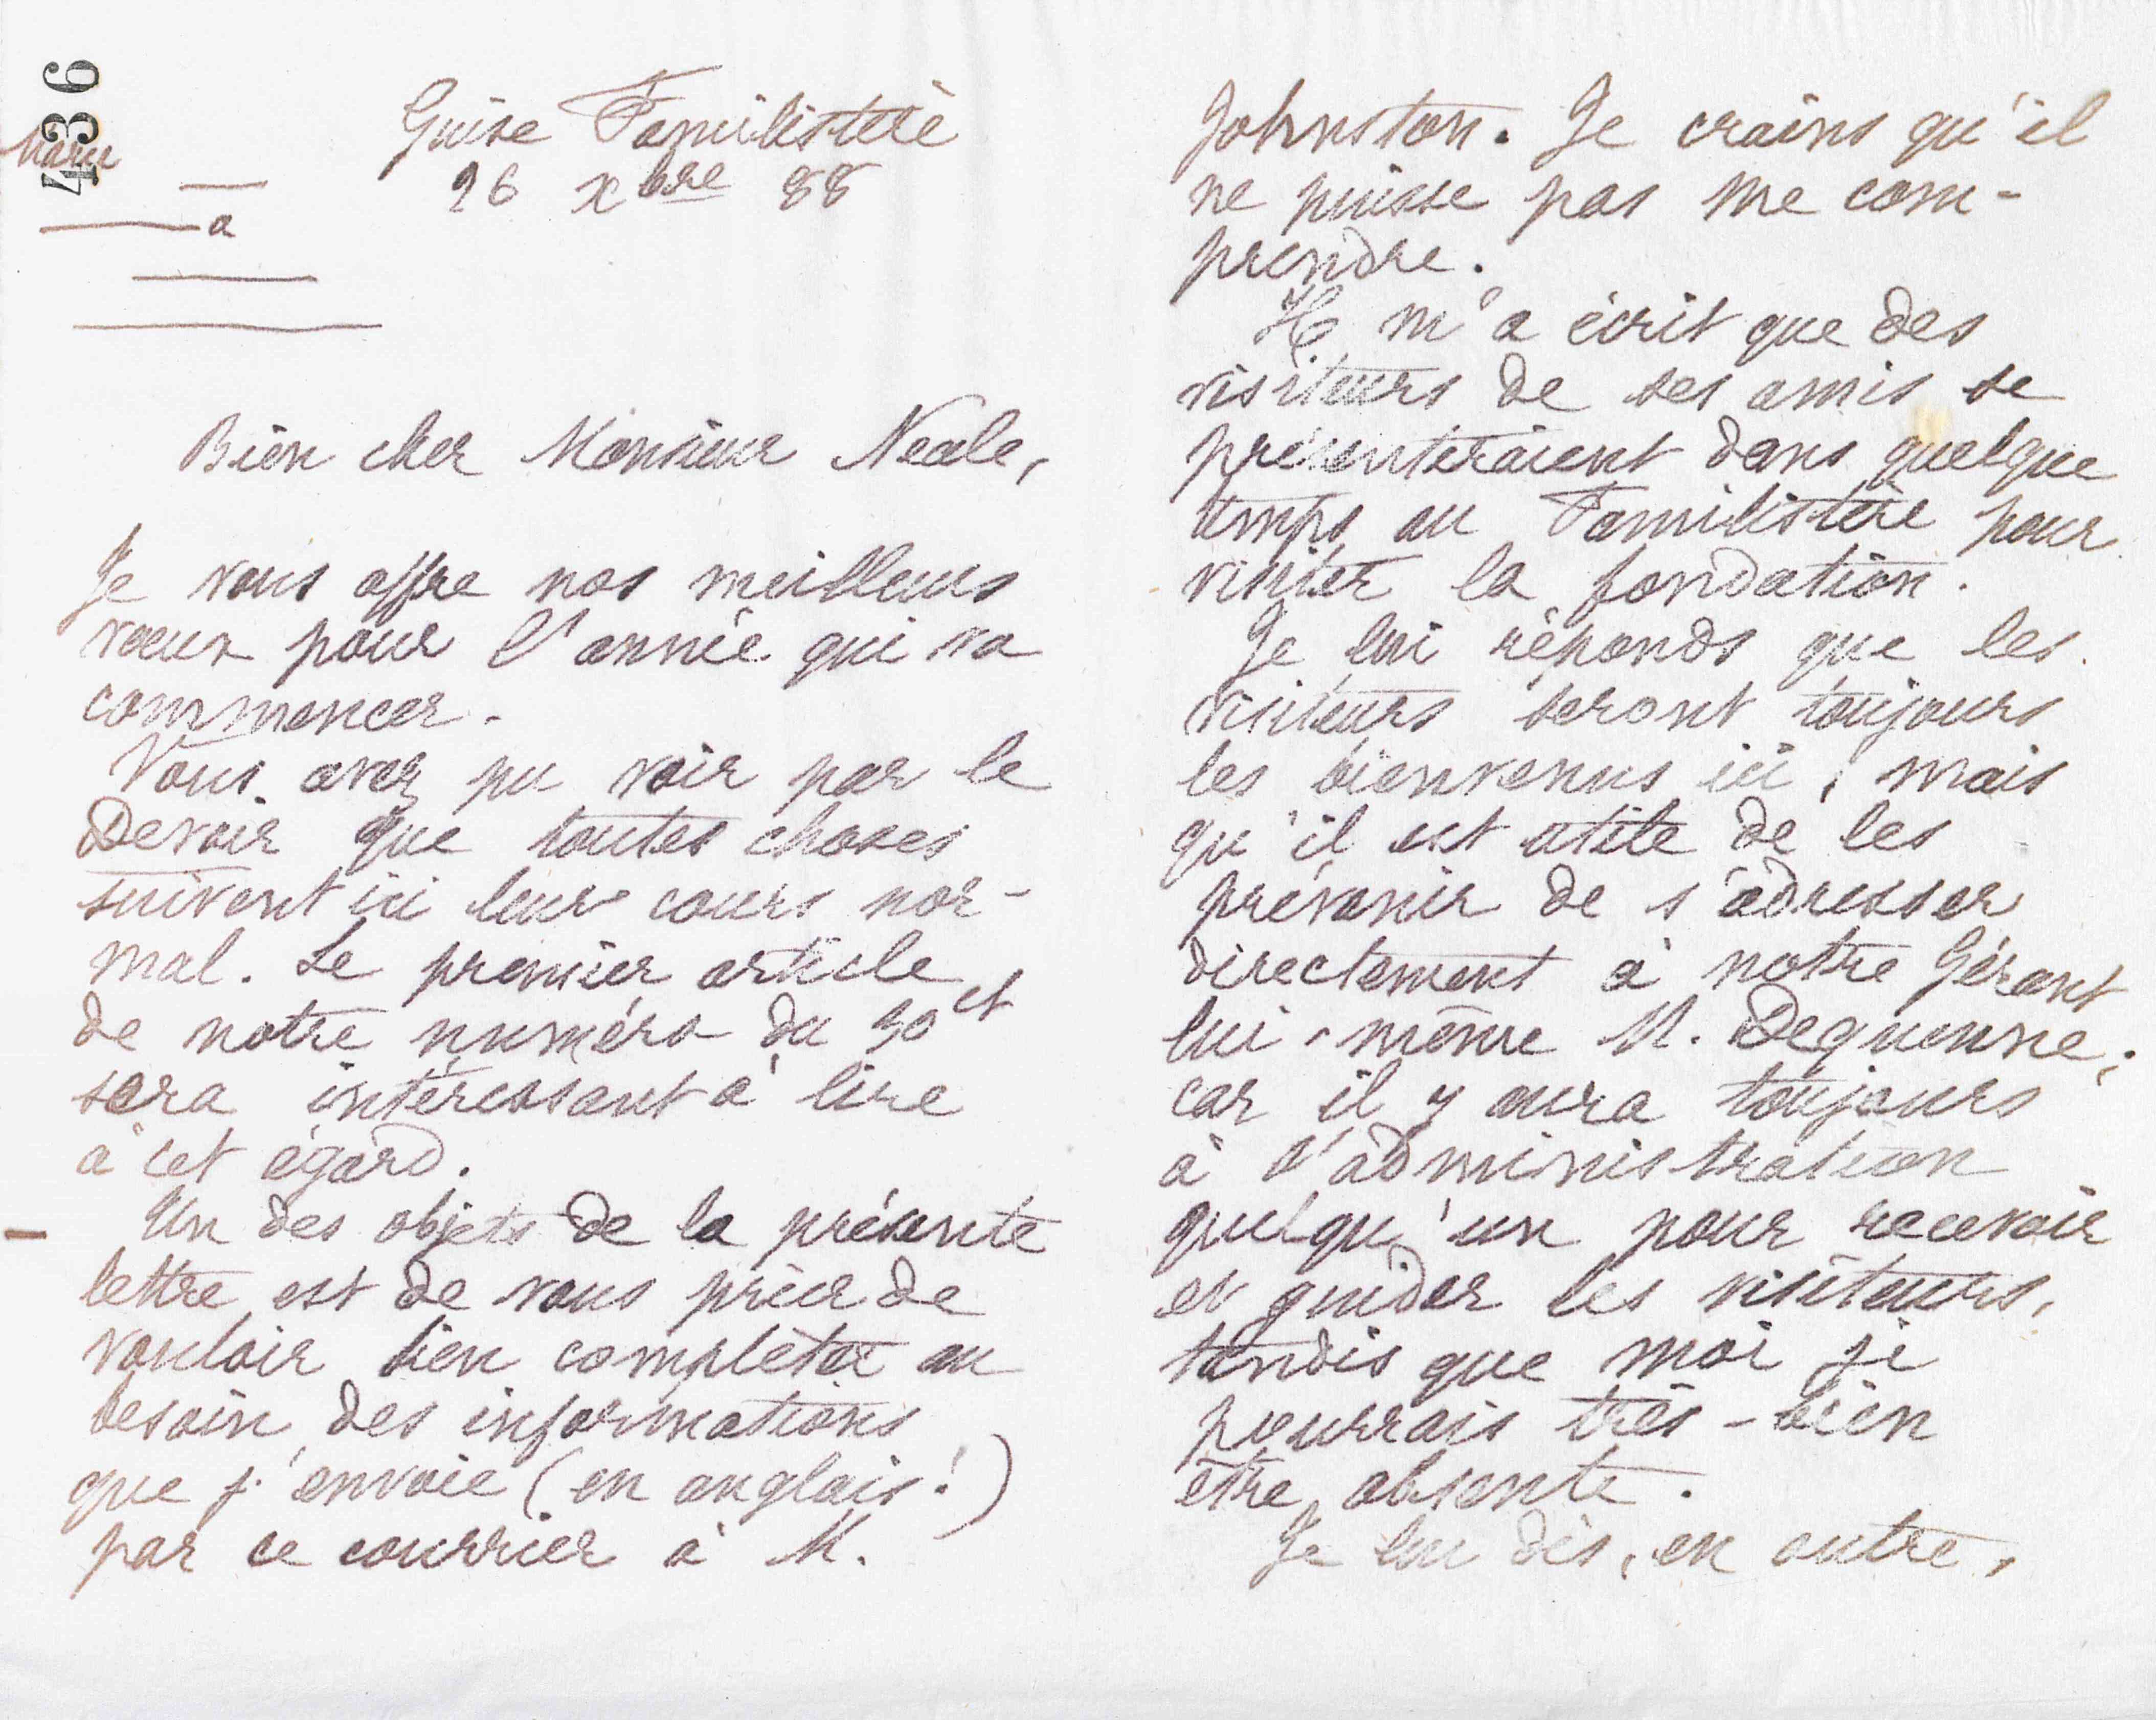 436
Marie
a
Guise Familistère
26 xbre 88
Bien cher Monsieur Neale,
Je vous offre nos meilleurs
vœux pour l'année qui va
commencer.
Vous avez pu voir par le
Devoir que toutes choses
suivent ici leur cours nor-
mal. Le premier article
de notre numéro du 30 ct
sera intéressant à lire
à cet égard.
Un des objets de la présente
lettre est de vous prier de
vouloir bien compléter au
besoin des informations
que j'envoie (en anglais!)
par ce courrier à M.
Johnston. Je crains qu'il
ne puisse pas me com-
prendre.
Il m'a écrit que des
visiteurs de ses amis se
présenteraient dans quelque
temps au Familistère pour
visiter la fondation.
Je lui réponds que les
visiteurs seront toujours
les bienvenus ici, mais
qu'il est utile de les
prévenir de s'adresser
directement à notre Gérant
lui-même M. Dequenne;
car il y aura toujours
à l'administration
quelqu'un pour recevoir
et guider les visiteurs,
tandis que moi je
pourrais très-bien
être absente.
Je lui dis, en outre,